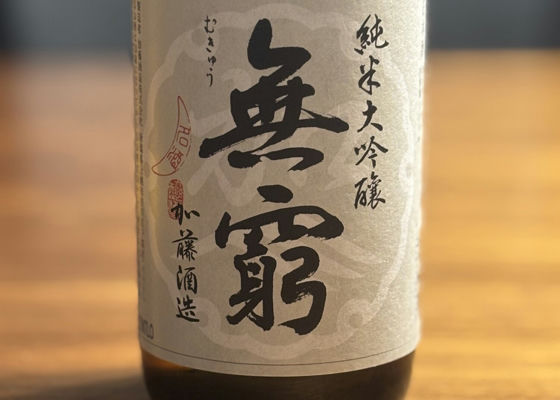 純米大吟醸
無窮
むきゅう
加藤酒造